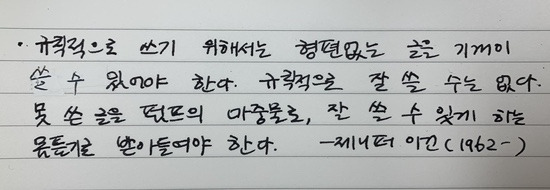 · 규칙적으로 쓰기 위해서는 형편없는 글을 기꺼이
쓸 수 있어야 한다. 규칙적으로 잘 쓸 수는 없다.
못 쓴 글을 펌프의 마중물로, 잘 쓸 수 있게 하는
몸풀기로 받아들여야 한다. -제니퍼 이건(1962-)